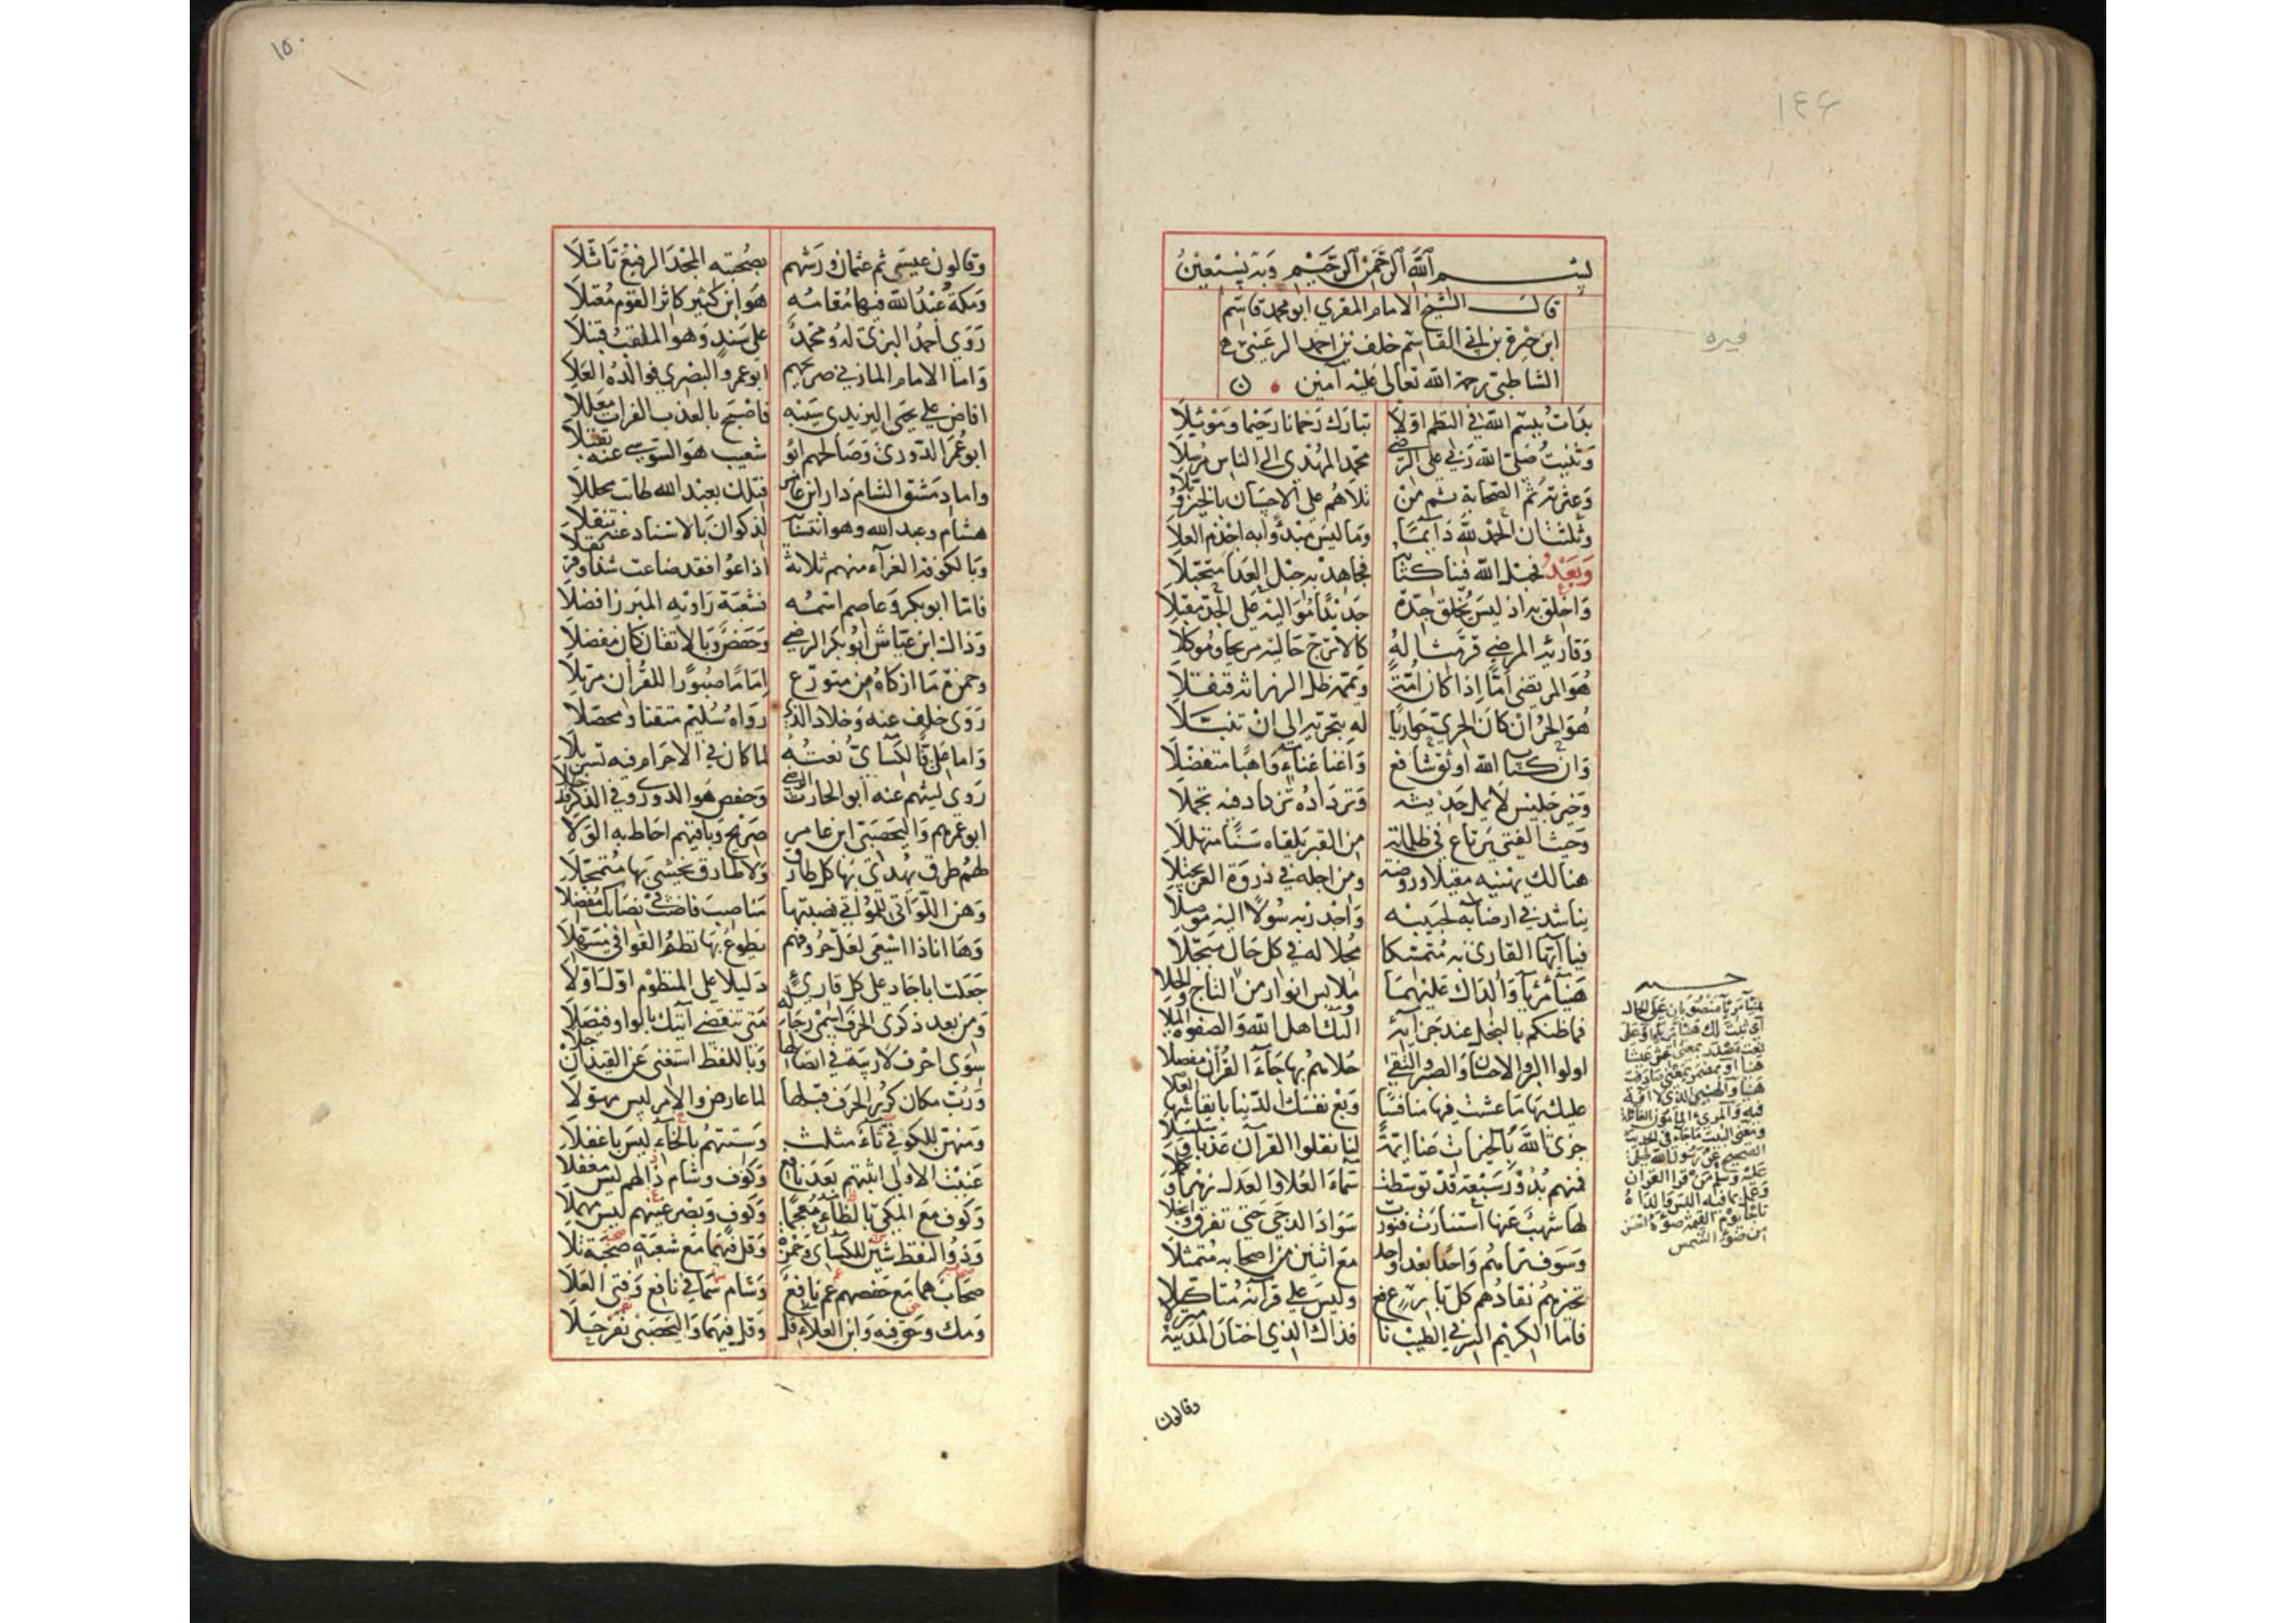 ١٤٩
بسم الله الرحمن الرحيم وبه نستعين
قال الشيخ الامام المقري ابو محمد قاسم
ابن خيرة بن ابي القاسم خلف بن احمد الرعيني
فيره
الشاطبي رحمة الله تعالى عليه آمين
بدات ببسم الله في النظم اولا تبارك رحمانا رحيما وموئيلا
وثنيت صلى الله ربي على الرضي محمد المهدي الى الناس مرسلا
وعترته ثم الصحابة ثم من تلاهم على الاحسان بالخير وبلا
وثلثت ان الحمد لله دائما وما ليس مبدوا به اجذم العلا
وبعد فحبل الله فينا كتابه فجاهد به حبل العدا متحبلا
واخلق به اذ ليس يخلق جدة جديدا مواليه على الجد مقبلا
وقاريه المرضي قر مثاله كالاترج حاليه مريحا وموكلا
هو المرتضى اما اذا كان امة ويممه ظل الرزانة قنقلا
هو الحر ان كان الحري حواريا له بتحريه الى ان تنبلا
وان كتاب الله اوثق شافع واغنا غناء واهبا متفضلا
وخير جليس لا يمل حديثه وترداده يزداد فيه تجملا
وحيث الفتى يرتاع في ظلماته من القبر يلقاه سنا متهللا
هنالك يهنيه مقيلا وروضة ومن اجله في ذروة العز يجتلا
يناشد في ارضائه لحبيبه واجدر به سولا اليه موصلا
فيا ايها القاري به متمسكا مجلا له في كل حال مبجلا
هنيا مريا والداك عليهما ملابس انوار من التاج والحلا
فما ظنكم بالنجل عند جزائه اولئك اهل الله والصفوة الملا
اولوا البر والاحسان والصبر والتقى حلاهم بها جاء القران مفصلا
عليك بها ما عشت فيها منافسا وبع نفسك الدنيا بانفاسها العلا
جزى الله بالخيرات عنا ايمة لنا نقلوا القرآن عذبا وسلسلا
فمنهم بدور سبعة قد توسطت سماء العلا والعدل زهرا وكملا
لها شهب عنها استنارت فنورت سواد الدجي حتى تفرق وانجلا
وسوف تراهم واحدا بعد واحد مع اثنين من اصحابه متمثلا
تخيرهم نقادهم كل بارع وليس على قرآنه متاكلا
فاما الكريم السر في الطيب نافع فذاك الذي اختار المدينة منزلا
وقالون
وقالون عيسى ثم عثمان ورشهم بصحبته المجد الرفيع تاثلا
ومكة عبد الله فيها مقامه هو ابن كثير كاثر القوم معتلا
روى احمد البزي له ومحمد على سند وهو الملقب قنبلا
واما الامام المازني صريحهم ابو عمرو البصري فوالده العلا
افاض على يحيى اليزيدي سيبه فاصبح بالعذب الفرات معللا
ابو عمر الدوري وصالحهم ابو شعيب هو السوسي عنه تقبلا
واما دمشق الشام دار ابن عامر فتلك بعبد الله طابت محللا
هشام وعبد الله وهو انتسابه لذكوان بالاسناد عنه تنقلا
وبالكوفة الغراء منهم ثلاثة اذاعوا فقد ضاعت شذا وقرنفلا
فاما ابو بكر وعاصم اسمه فشعبة راويه المبرز افضلا
وذاك ابن عياش ابو بكر الرضي وحفص وبالاتقان كان مفضلا
وحمزة ما ازكاه من متورع اماما صبورا للقران مرتلا
روى خلف عنه وخلاد الذي رواه سليم متقنا ومحصلا
واما علي فالكسائي نعته لما كان في الاحرام فيه تسربلا
روى ليثهم عنه ابو الحارث الرضي وحفص هو الدوري وفي الذكر قد خلا
ابو عمرهم واليحصبي ابن عامر صريح وباقيهم احاط به الولا
لهم طرق يهدى بها كل طارق ولا طارق يخشى بها متمحلا
وهن اللواتي للمواتي نصبتها مناصب فانصب في نصابك مفضلا
وها انا ذا اسعى لعل حروفهم يطوع بها نظم القوافي مسهلا
جعلت ابا جاد على كل قارئ دليلا على المنظوم اول اولا
ومن بعد ذكري الحرف اسمى رجاله متى تنقضي آتيك بالواو فيصلا
سوى احرف لا ريبة في اتصالها وباللفظ استغنى عن القيد ان جلا
ورب مكان كرر الحرف قبلها لما عارض والامر ليس مهولا
ومنهن للكوفي ثاء مثلث وستتهم بالخاء ليس باغفلا
عنيت الاولى اثبتهم بعد نافع وكوف وشام ذالهم ليس مغفلا
وكوف مع المكي بالظاء معجما وكوف وبصر غينهم ليس مهملا
وذو النقط شين للكساي وحمزة وقل فيهما مع شعبة صحبة تلا
صحاب هما مع حفصهم عم نافع وشام سما في نافع وفتى العلا
ومك وحق فيه وابن العلاء قل وقل فيهما واليحصبي نفر حلا
١٥٠